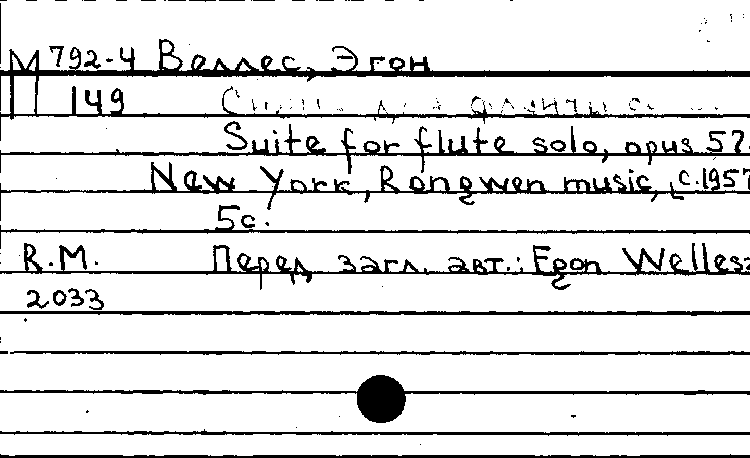 М 792-4 Веллес, Эгон
149 Сюита для флейты с
Suite for flute solo, opus 57.
New York, Rongwen music, [c.1957
5с.
R.M. Перед загл. авт.: Egon Wellesz
2033